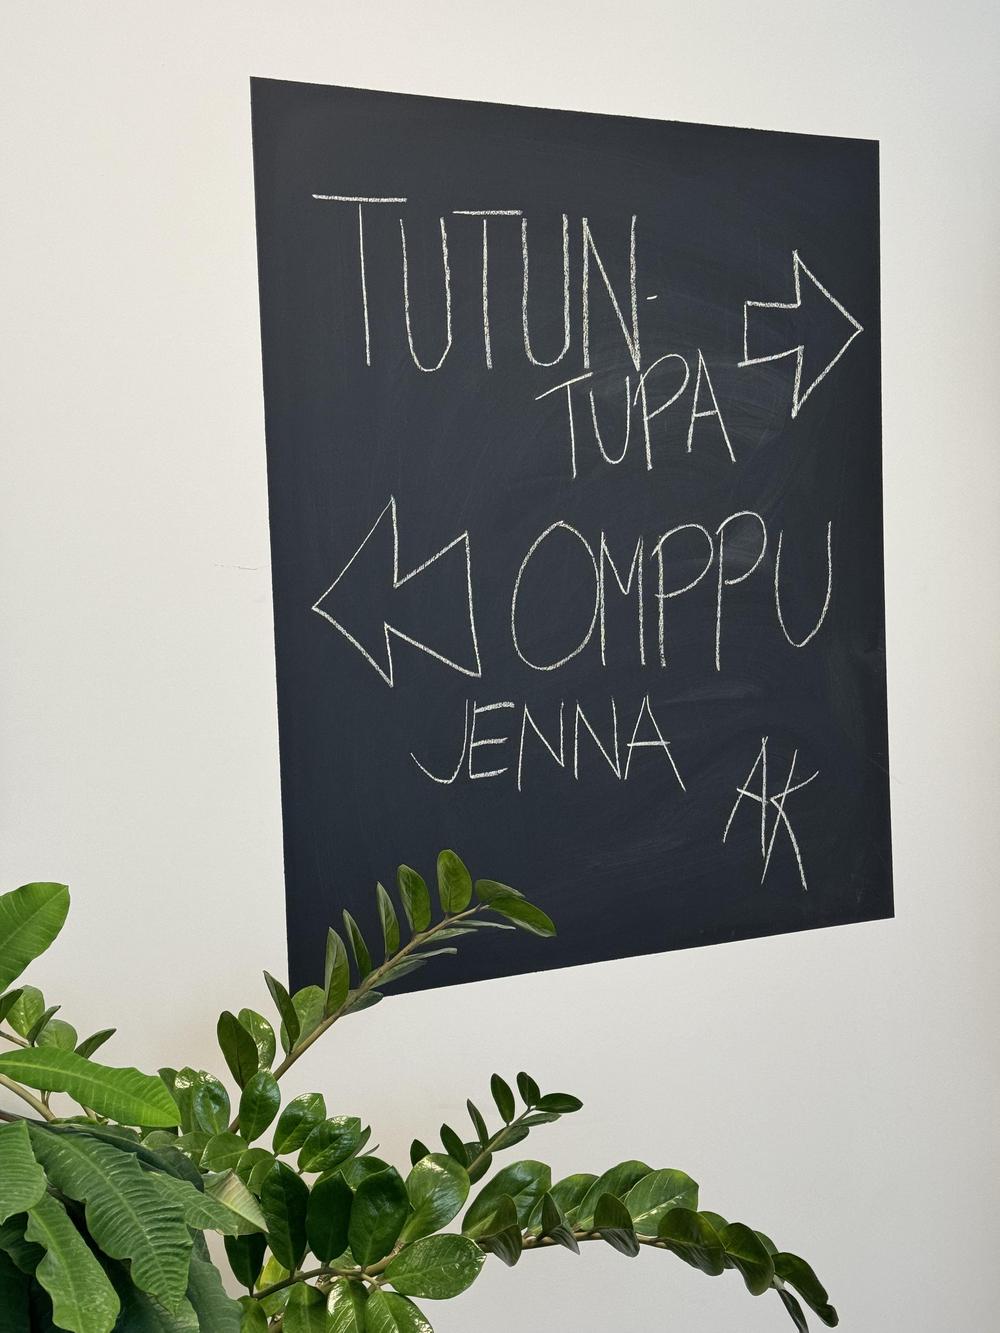 TUTUN-
TUPA
OMPPU
JENNA
AK